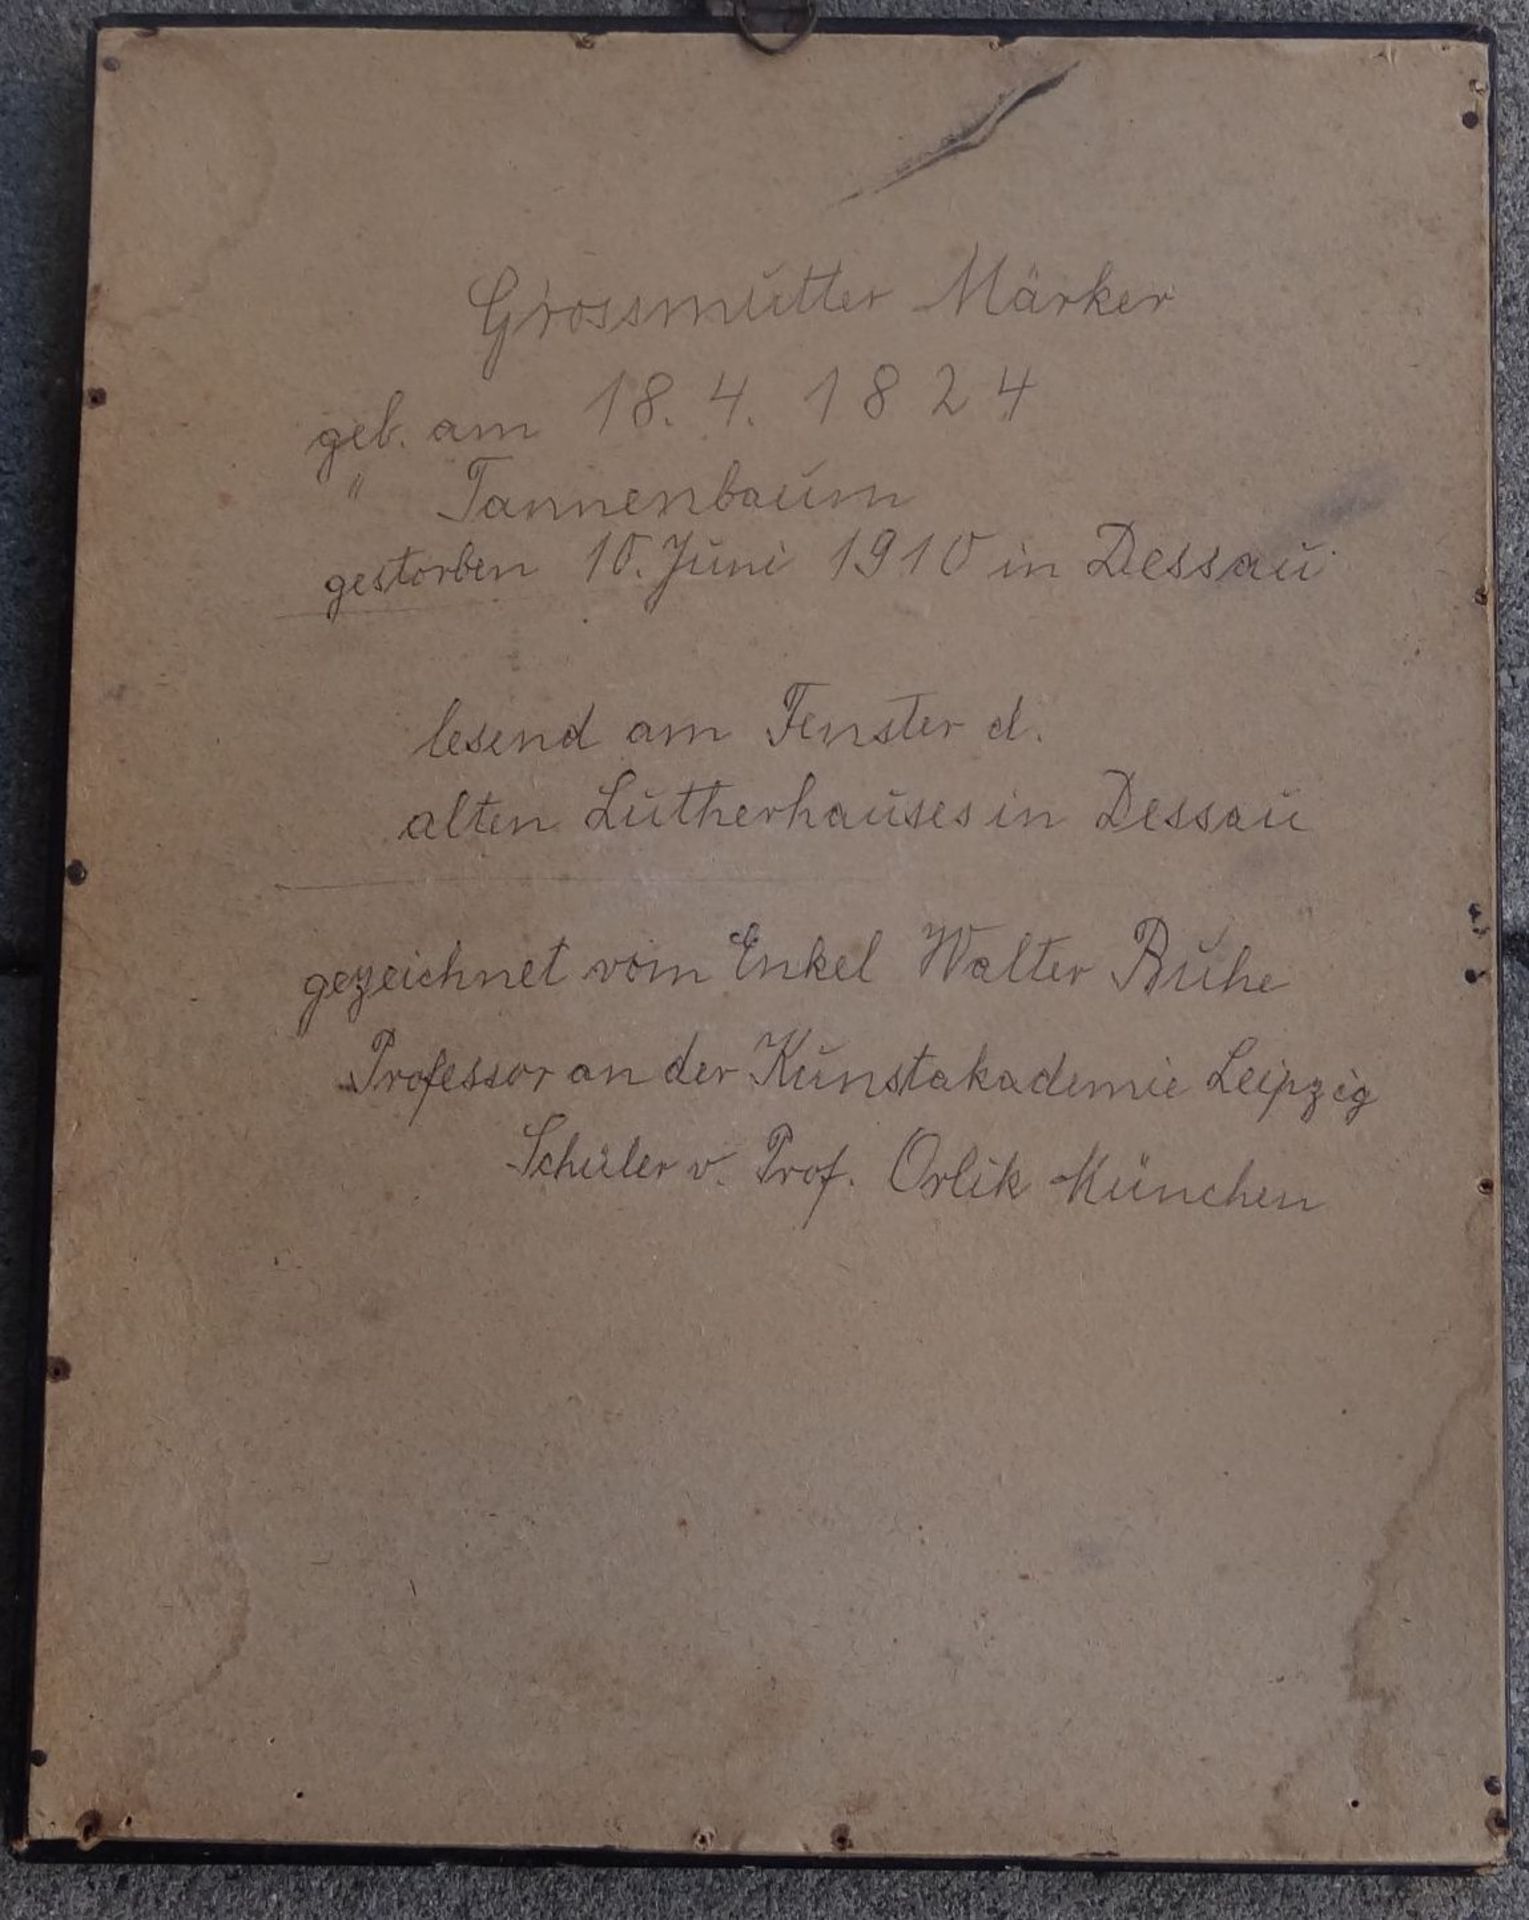 Grossmutter Märker
geb. am 18. 4. 1824
" Tannenbaum
gestorben 10. Juni 1910 in Dessau
lesend am Fenster d.
alten Lutherhauses in Dessau
gezeichnet vom Enkel Walter Buhe
Professor an der Kunstakademie Leipzig
Schüler v. Prof. Orlik München